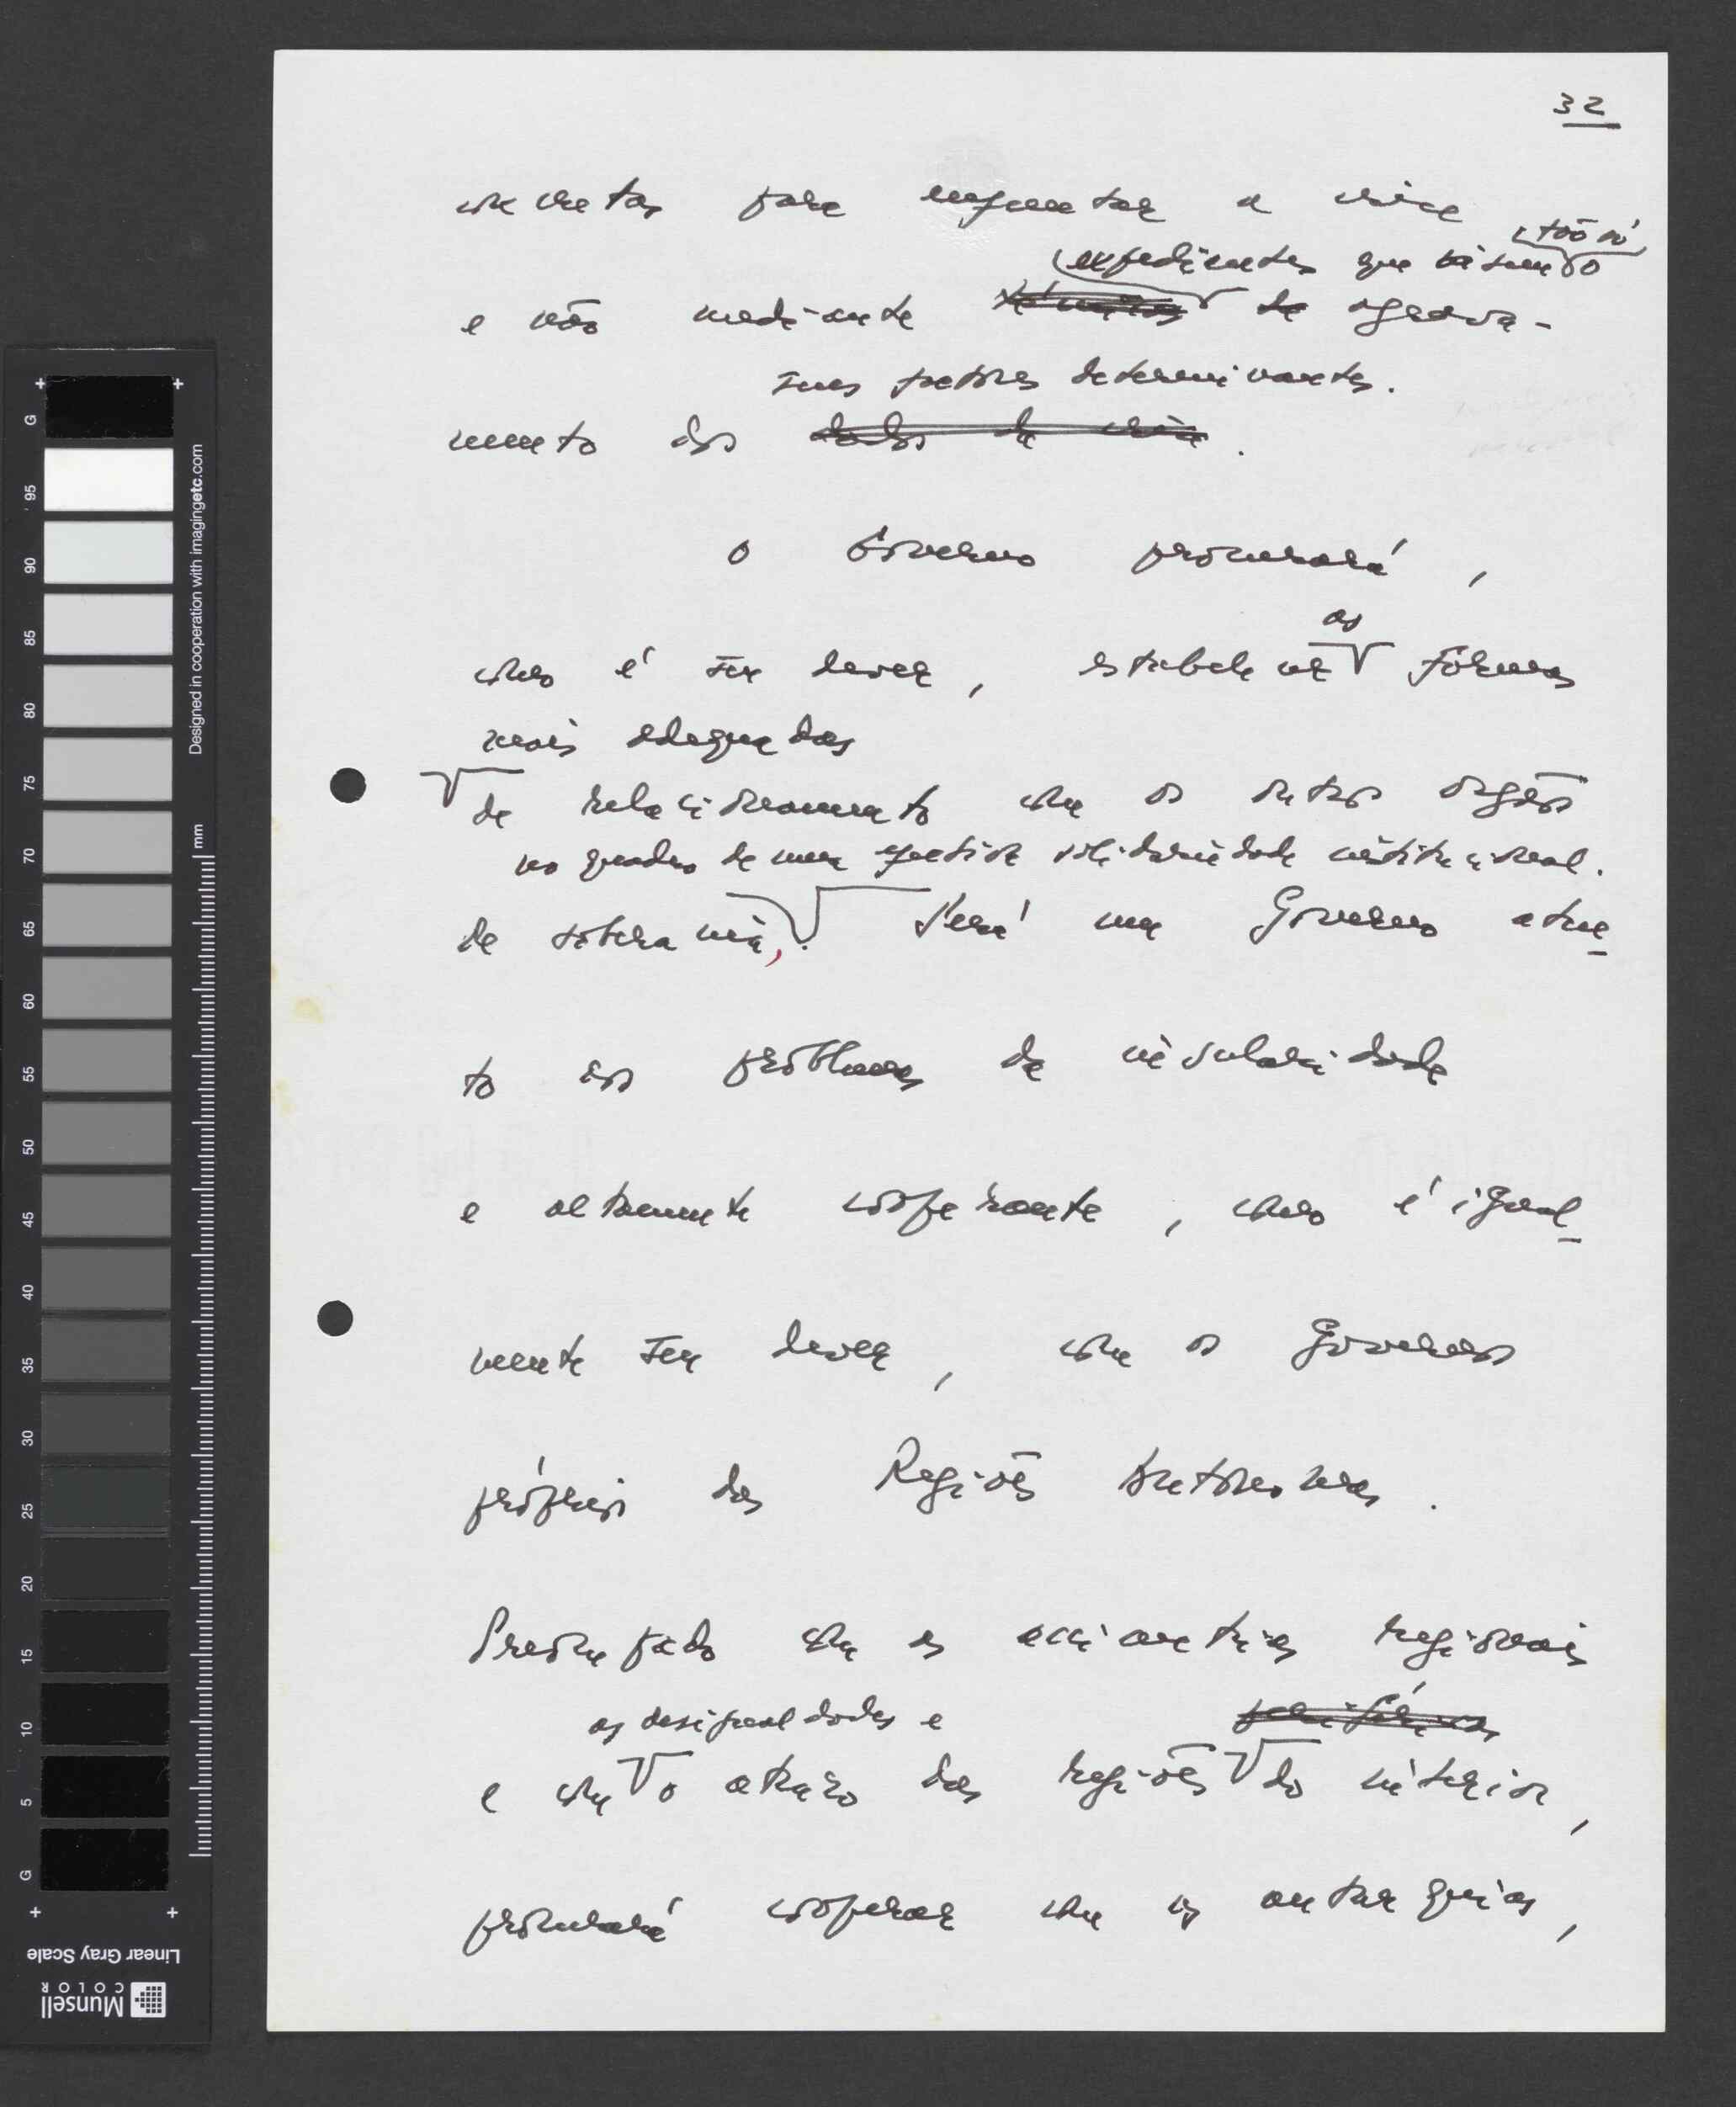 32
concretas para enfrentar a crise
tão só
expedientes que visam o
e não mediante técnicas de agrava-
seus factores determinantes.
mento dos dados da crise.
O Governo procurará,
as
como é seu dever, estabelecer formas
mais adequadas
de relacionamento com os outros órgãos
no quadro de uma efectiva solidariedade institucional.
de soberania,. Será um Governo aten
to aos problemas da insularidade
e altamente cooperante, como é igual
mente seu dever, com os Governos
próprios das Regiões Autónomas.
Preocupado com as assimetrias regionais
as desigualdades e periféricas
e com o atraso das regiões do interior,
procurará cooperar com as autarquias,
Designed in cooperation with imagingetc.com
mm
G 95 90 85 80 75 70 65 60 55 50 45 40 35 30 25 20 15 10 5 G
Linear Gray Scale
Munsell
COLOR